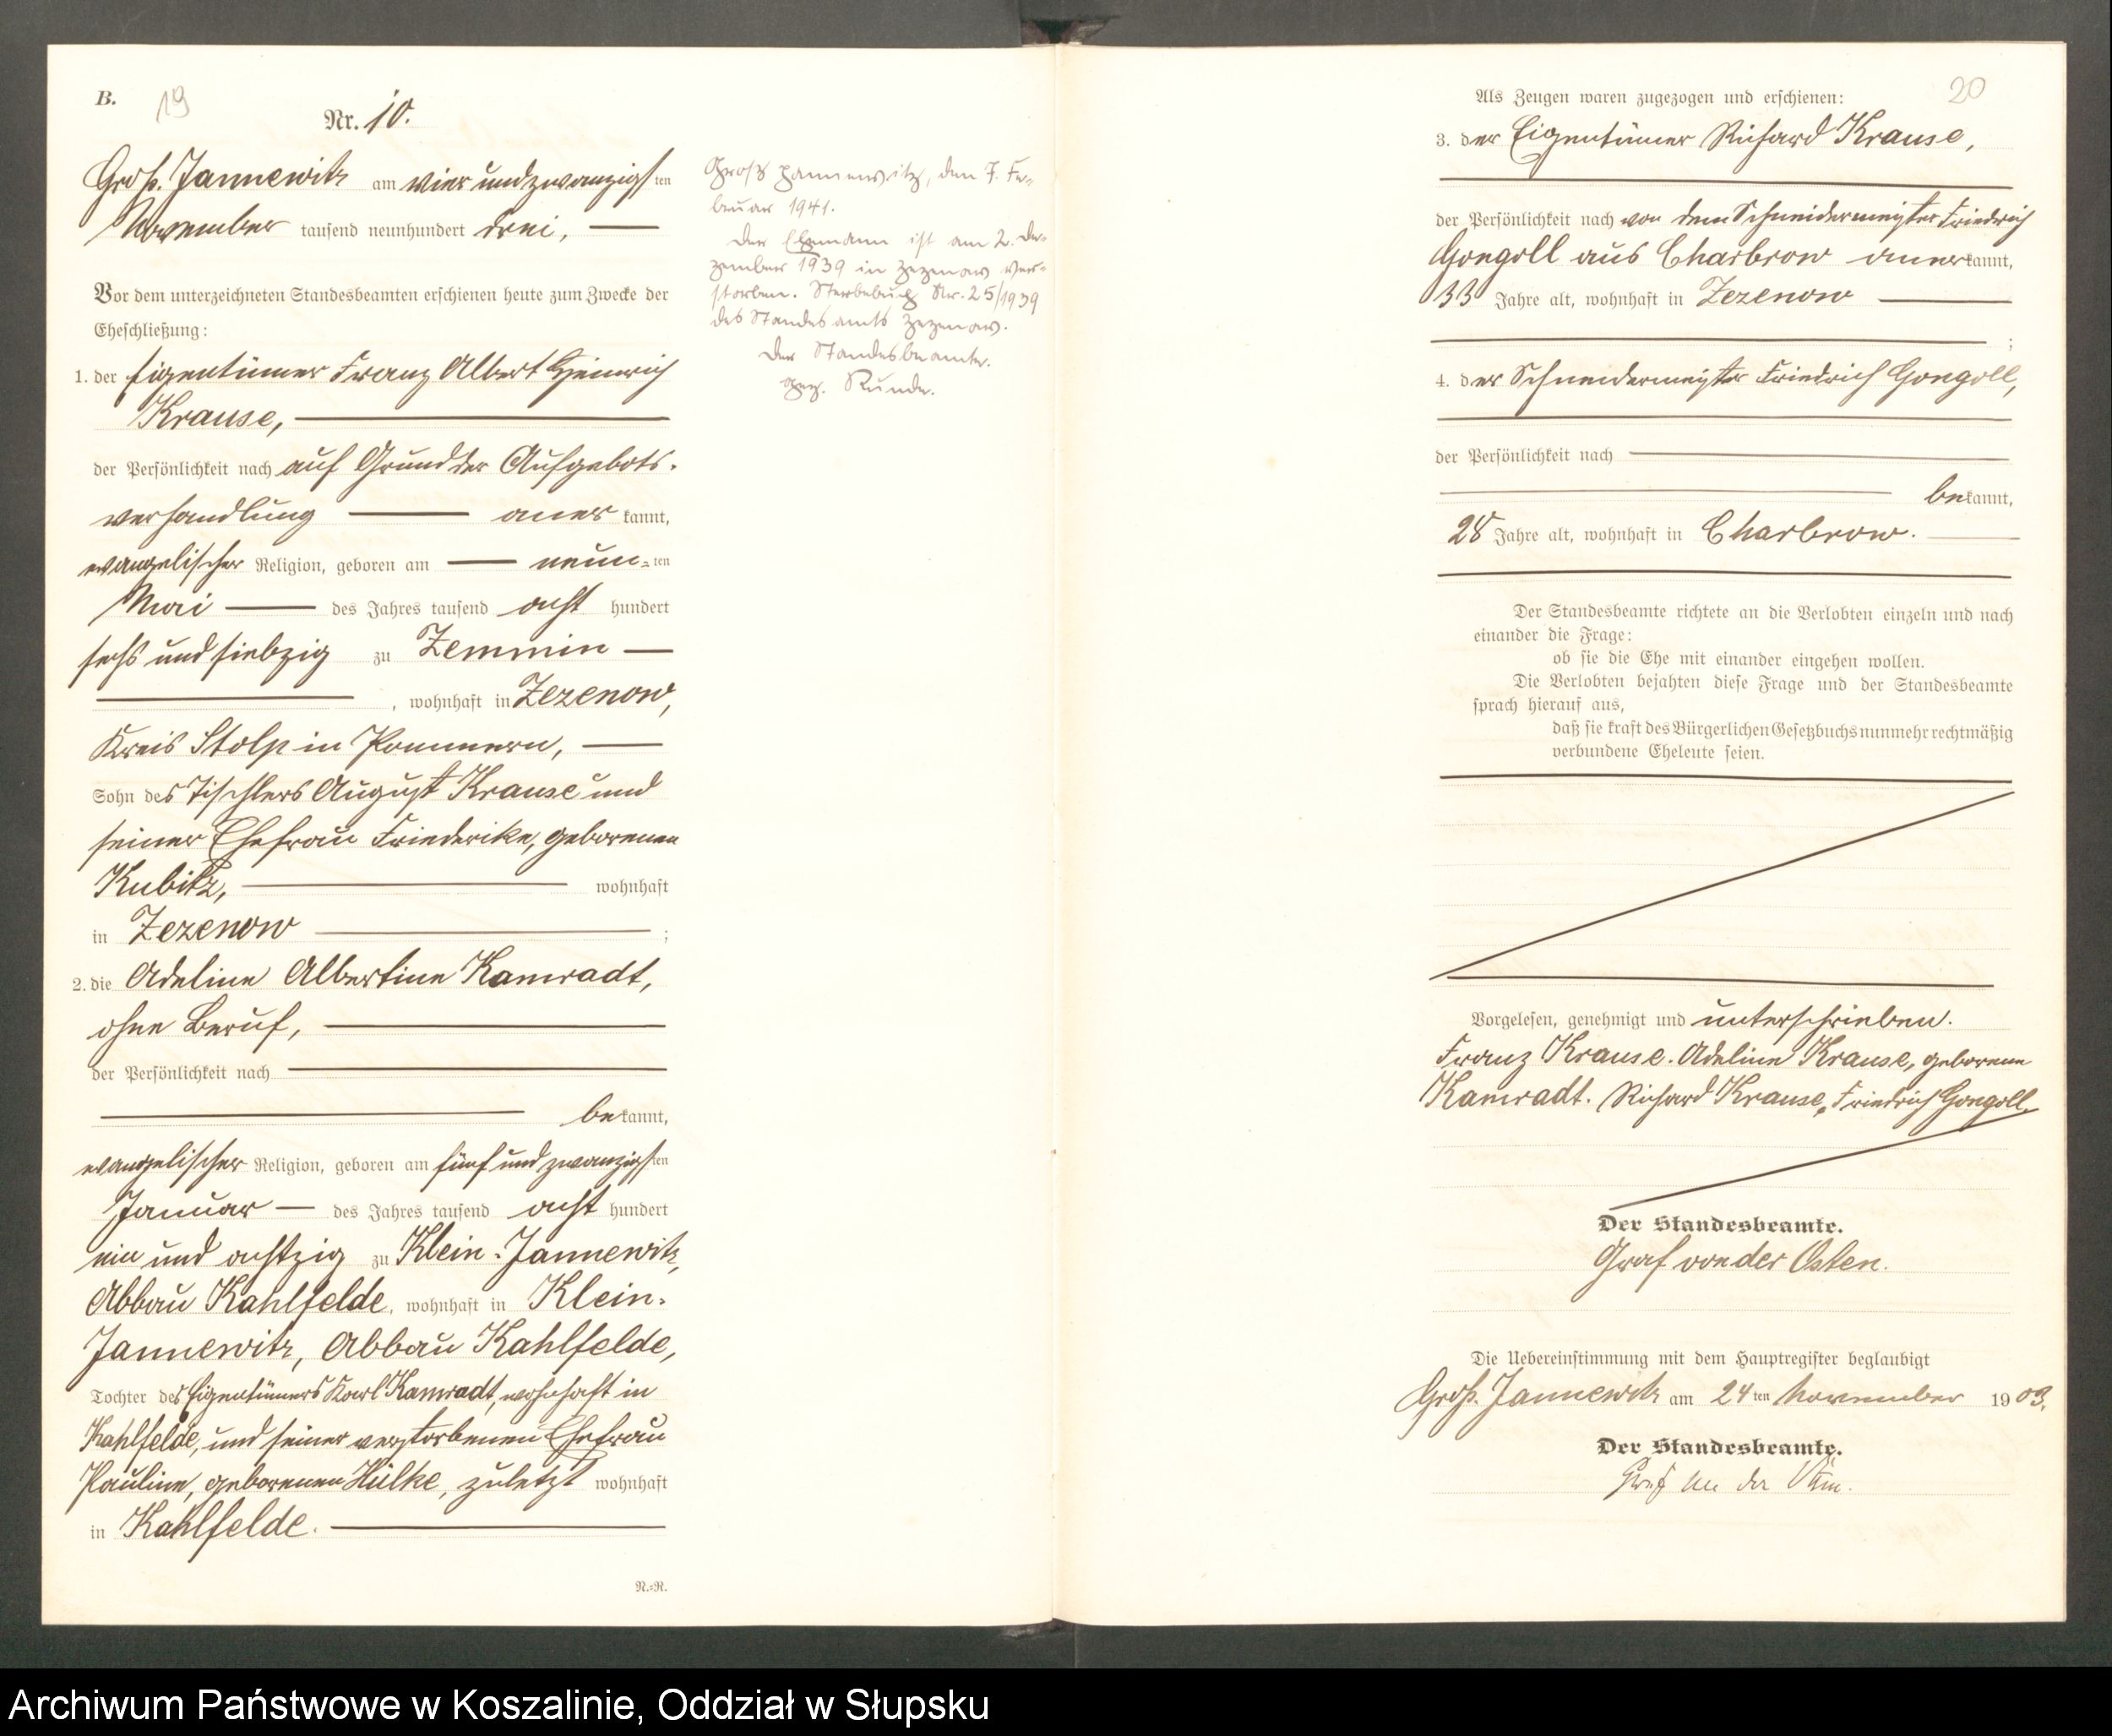 B.
19
Nr. 10.
Groß-Jannewitz am vier und zwanzigsten
November tausend neunhundert drei,
Vor dem unterzeichneten Standesbeamten erschienen heute zum Zwecke der
Eheschließung:
1. der Eigentümer Franz Albert Heinrich
Krause,
der Persönlichkeit nach auf Grund der Aufgebots-
verhandlung anerkannt,
evangelischer Religion, geboren am neun-ten
Mai des Jahres tausend acht hundert
sechs und siebzig zu Zemmin
, wohnhaft in Zezenow,
Kreis Stolp in Pommern,
Sohn des Tischlers August Krause und
seiner Ehefrau Friederike, geborenen
Kubitz, wohnhaft
in Zezenow ;
2. die Adeline Albertine Kamradt,
ohne Beruf,
der Persönlichkeit nach
bekannt,
evangelischer Religion, geboren am fünf und zwanzigsten
Januar des Jahres tausend acht hundert
ein und achtzig zu Klein-Jannewitz,
Abbau Kahlfelde, wohnhaft in Klein-
Jannewitz, Abbau Kahlfelde,
Tochter des Eigentümers Karl Kamradt, wohnhaft in
Kahlfelde, und seiner verstorbenen Ehefrau
Pauline, geborenen Hülke, zuletzt wohnhaft
in Kahlfelde.
N.=R.
Groß Jannewitz, den 7. Fe-
bruar 1941.
Der Ehemann ist am 2. De-
zember 1939 in Zezenow ver-
storben. Sterbebuch Nr. 25/1939
des Standesamts Zezenow.
Der Standesbeamte.
gez. Runde.
20
Als Zeugen waren zugezogen und erschienen:
3. der Eigentümer Richard Krause,
der Persönlichkeit nach von dem Schneidermeister Friedrich
Gongoll aus Charbrow anerkannt,
33 Jahre alt, wohnhaft in Zezenow
;
4. der Schneidermeister Friedrich Gongoll,
der Persönlichkeit nach
bekannt,
28 Jahre alt, wohnhaft in Charbrow.
Der Standesbeamte richtete an die Verlobten einzeln und nach
einander die Frage:
ob sie die Ehe mit einander eingehen wollen.
Die Verlobten bejahten diese Frage und der Standesbeamte
sprach hierauf aus,
daß sie kraft des Bürgerlichen Gesetzbuchs nunmehr rechtmäßig
verbundene Eheleute seien.
Vorgelesen, genehmigt und unterschrieben.
Franz Krause. Adeline Krause, geborene
Kamradt. Richard Krause, Friedrich Gongoll.
Der Standesbeamte.
Graf von der Osten.
Die Uebereinstimmung mit dem Hauptregister beglaubigt
Groß-Jannewitz am 24ten November 1903.
Der Standesbeamte.
Graf von der Osten.
Archiwum Państwowe w Koszalinie, Oddział w Słupsku